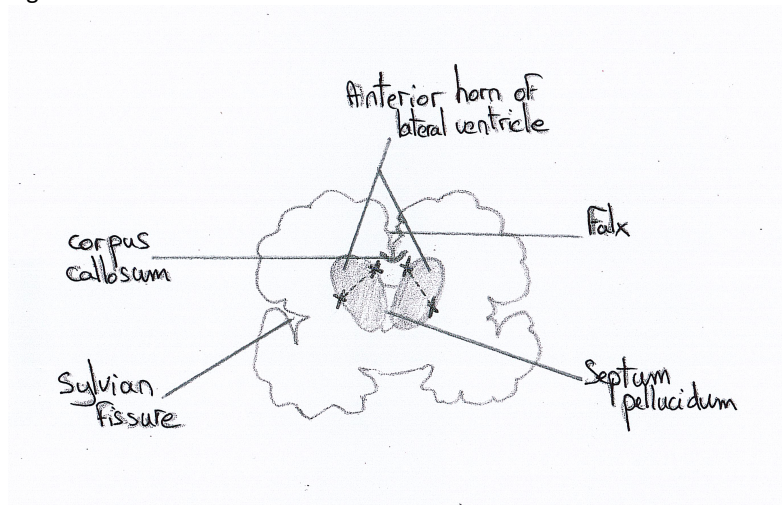 Anterior horn of
lateral ventricle
Falx
corpus
callosum
Sylvian
fissure
Septum
pellucidum